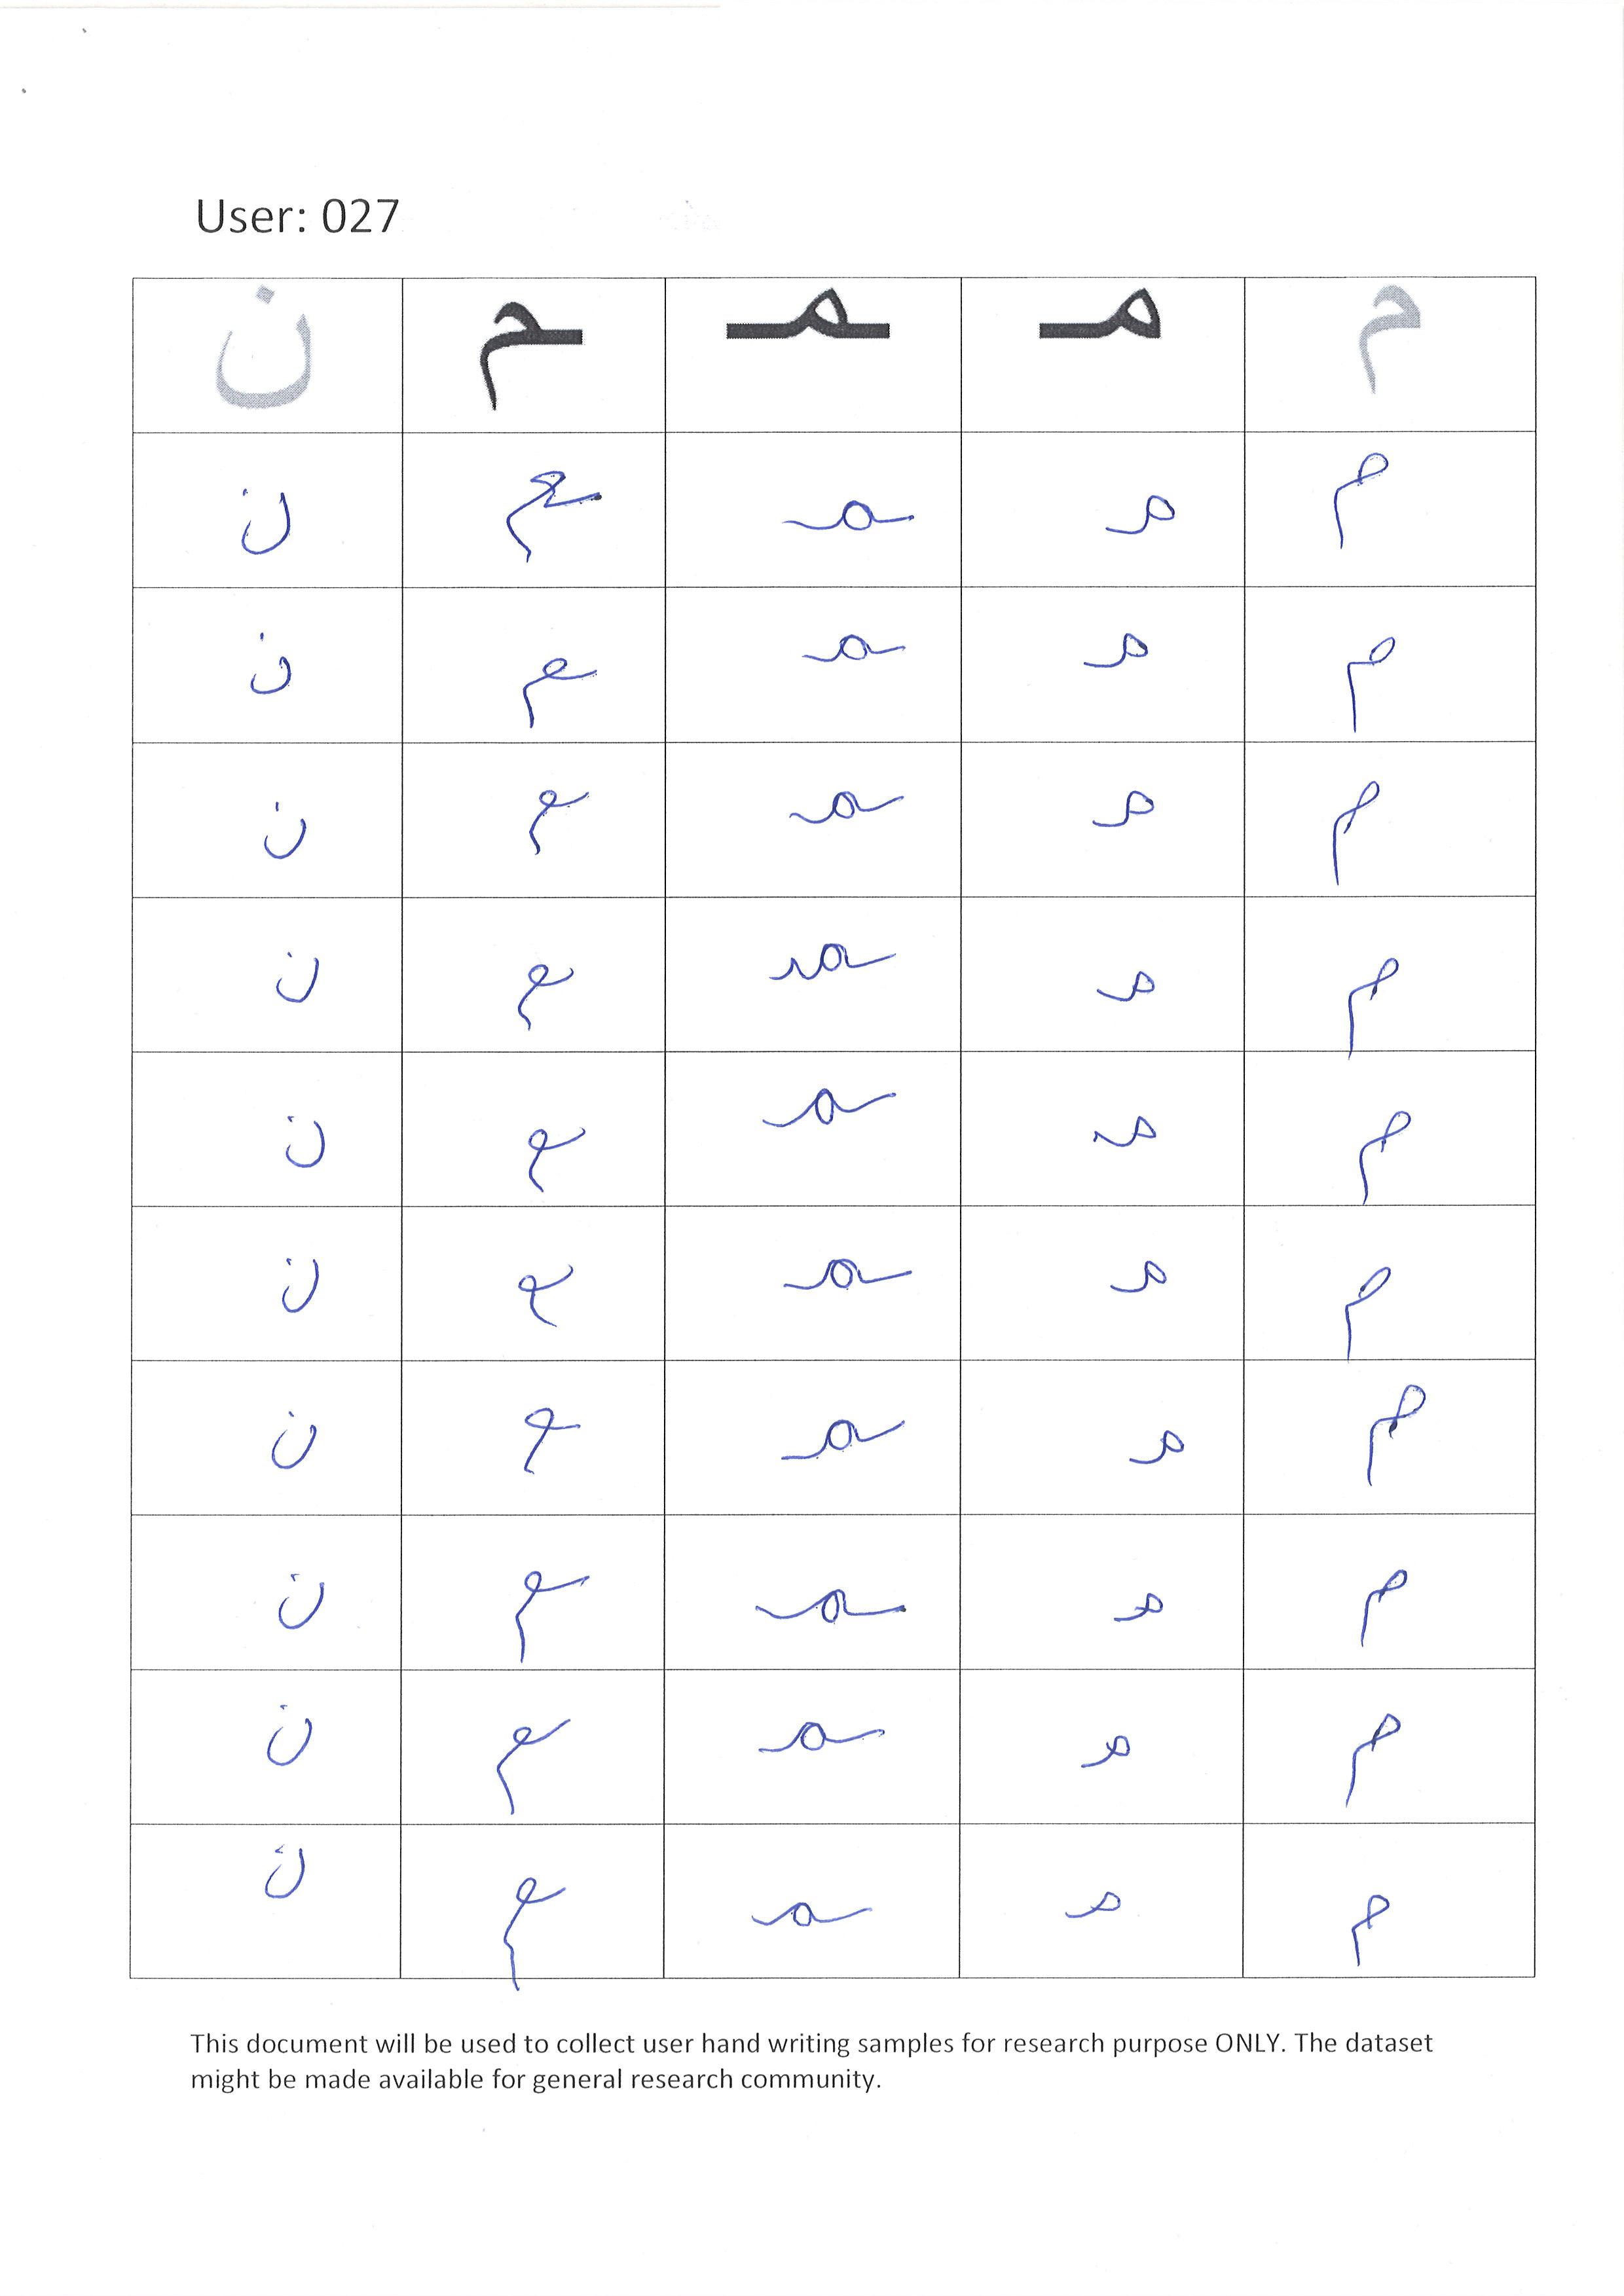 User: 027
م مـ ـمـ ـم ن
م مـ ـمـ ـم ن
م مـ ـمـ ـم ن
م مـ ـمـ ـم ن
م مـ ـمـ ـم ن
م مـ ـمـ ـم ن
م مـ ـمـ ـم ن
م مـ ـمـ ـم ن
م مـ ـمـ ـم ن
م مـ ـمـ ـم ن
م مـ ـمـ ـم ن
This document will be used to collect user hand writing samples for research purpose ONLY. The dataset
might be made available for general research community.